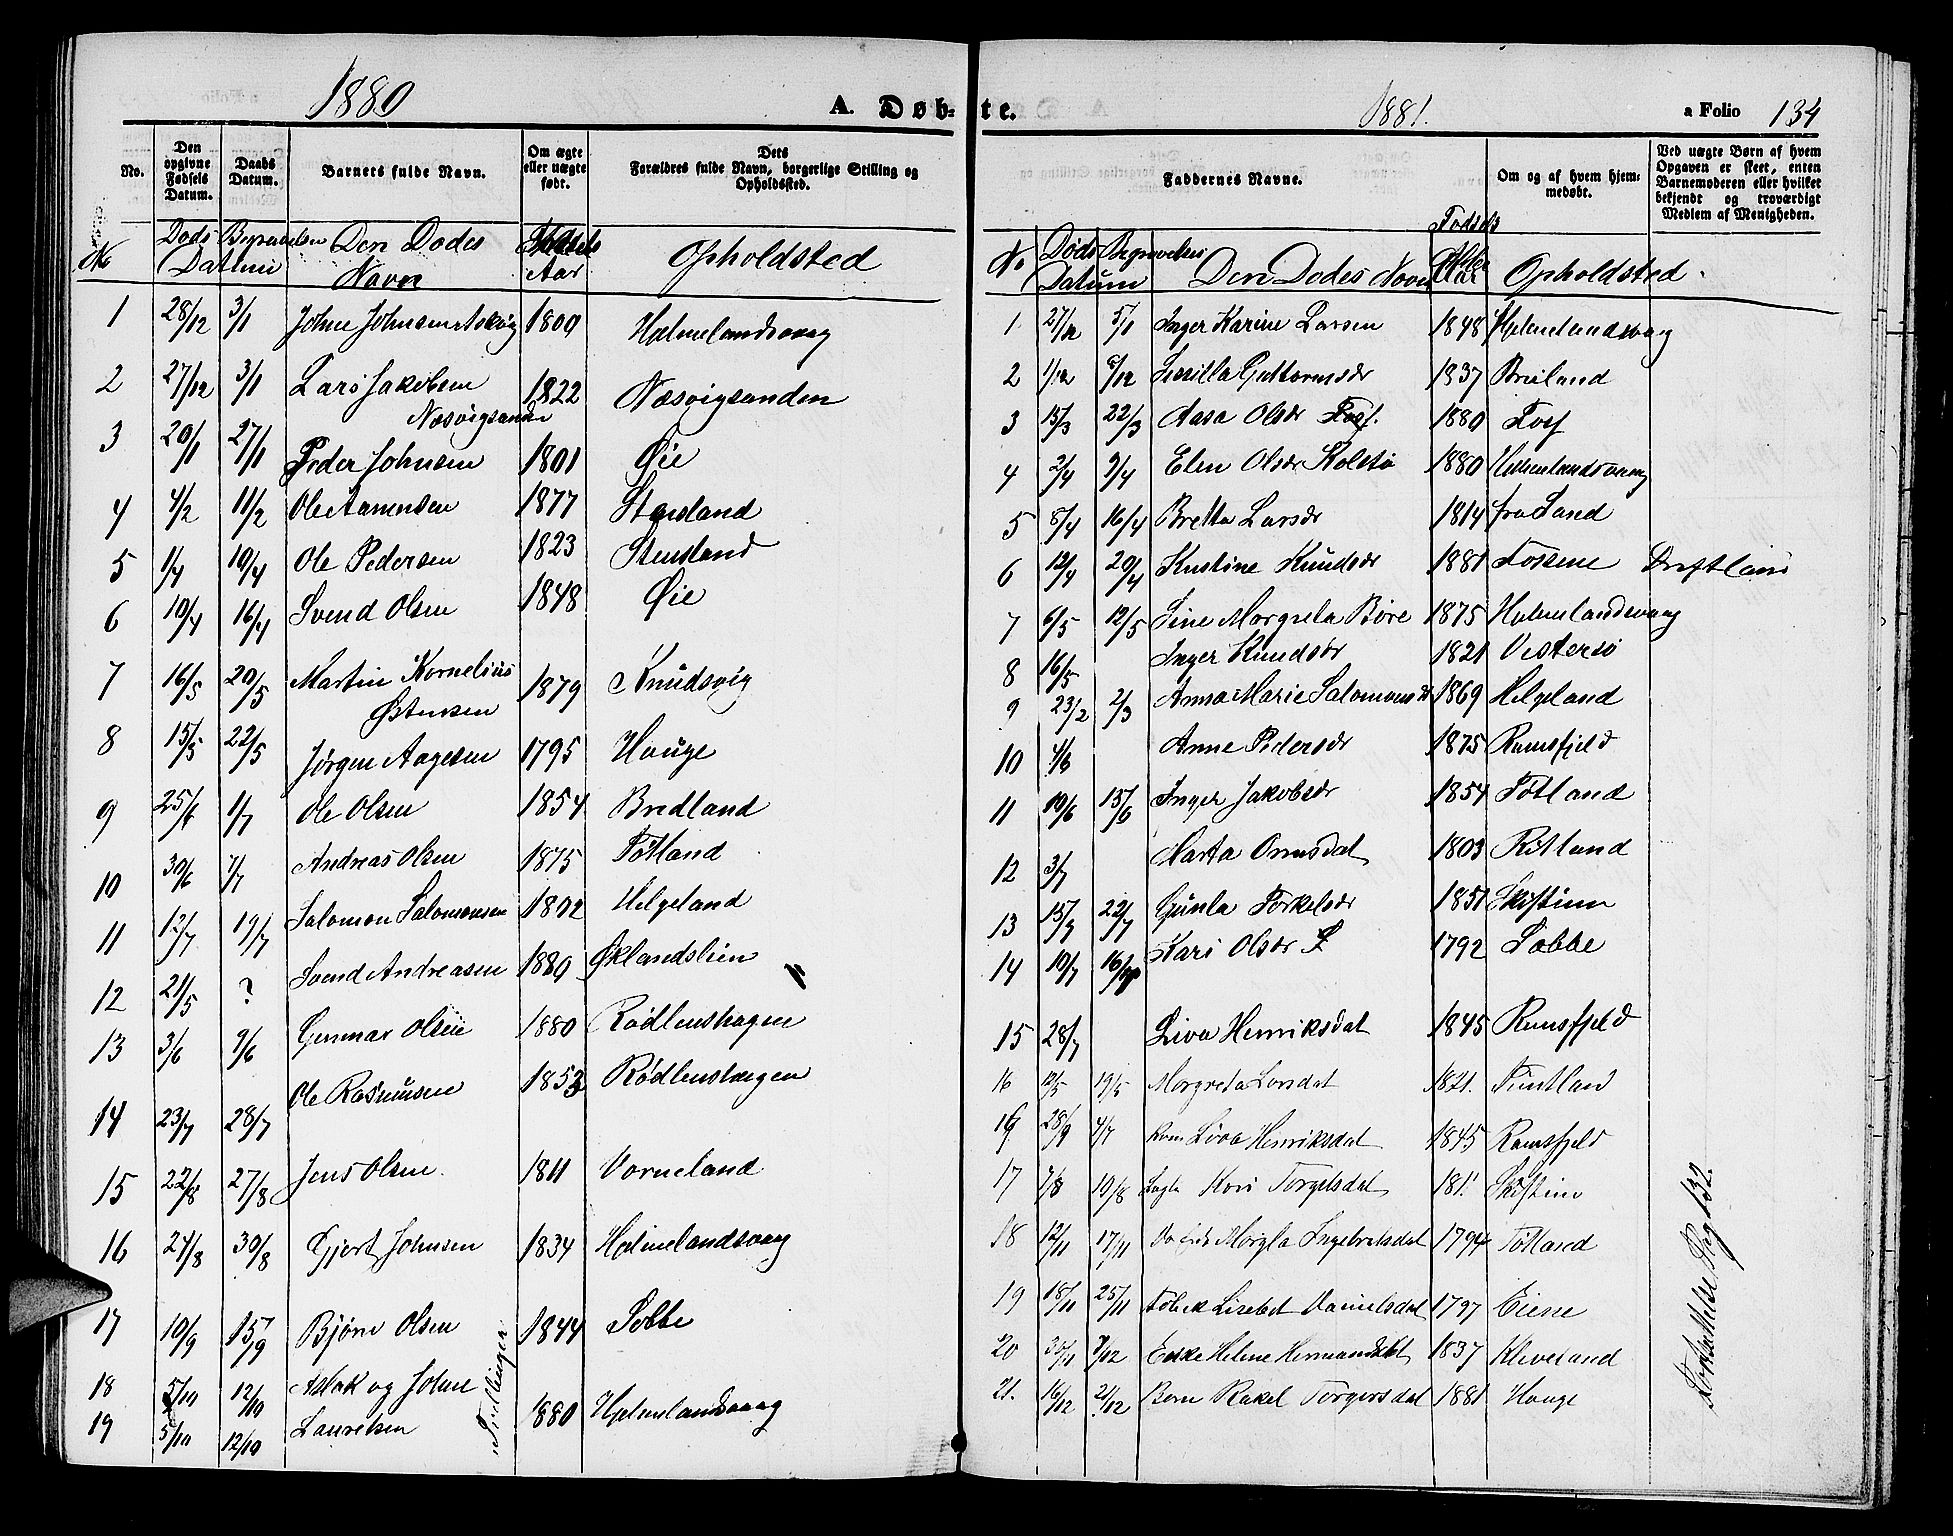 1880
A. Døb-
No.
Den opgivne Fødsels Datum.
Daabs Datum.
Barnets fulde Navn.
Om ægte eller uægte født.
Dets Forældres fulde Navn, borgerlige Stilling og Opholdsted.
No Døds Begravelses Datum Den Dødes Navn Aar Opholdsted
1 28/12 3/1 Johne Johnsen 1809 Hølmelandsvaag
2 27/12 3/1 Lars Jakobsen Næsvigsanden 1822 Næsvigsanden
3 20/1 27/1 Peder Johnsen 1801 Øie
4 4/2 11/2 Ole Aanensen 1877 Stensland
5 1/4 10/4 Ole Pedersen 1823 Stensland
6 10/4 16/4 Svend Olsen 1848 Øie
7 16/5 20/5 Martin Kornelius Østensen 1879 Knudsvig
8 15/5 22/5 Jørgen Aagesen 1795 Hauge
9 25/6 1/7 Ole Olsen 1854 Bredland
10 30/6 7/7 Andreas Olsen 1875 Tøtland
11 12/7 19/7 Salomon Salomonsen 1802 Helgeland
12 21/5 ? Svend Andreasen 1880 Øklandslien
13 3/6 9/6 Gunnar Olsen 1880 Rødlenshagen
14 23/7 28/7 Ole Rasmusen 1853 Rødlenshagen
15 22/8 27/8 Jens Olsen 1811 Vorneland
16 24/8 30/8 Gjert Johnsen 1834 Hølmelandsvaag
17 10/9 15/9 Bjørn Olsen 1844 Tobbe
18 5/10 12/10 Aslak og Johne
19 5/10 12/10 Lauretsen Tvillinger 1880 Hølmelandsvaag
te.
1881.
a Folio 134
Faddernes Navne.
Om og af hvem hjemmedøbt.
Ved uægte Børn af hvem Opgaven er skeet, enten Barnemoderen eller hvilket bekjendt og troværdigt Medlem af Menigheden.
No Døds Begravelses Datum Den Dødes Navn Fødsels Aar Opholdsted
1 27/12 5/1 Inger Karine Larsen 1848 Hølmelandsvaag
2 1/12 6/12 Guttormsdr 1837 Breiland
3 15/3 22/3 Aasa Olsdr Fosf. 1880 Fosf
4 2/4 9/4 Elen Olsdr Kolstø 1880 Hølmelandsvaag
5 8/4 16/4 Bretta Larsdr 1814 fra Sand
6 12/4 20/4 Kristine Knudsdr 1881 Fossene
7 6/5 12/5 Sine Margreta Bore 1875 Hølmelandsvaag
8 16/5 Inger Knudsdr 1821 Vestersø
9 23/2 2/3 Anna Marie Salomonsdr 1869 Helgeland
10 4/6 Anne Pedersdr 1875 Ramsfjeld
11 10/6 15/6 Inger Jakobsdr 1854 Tøtland
12 3/7 Marta Ormsdat 1803 Ritland
13 15/7 22/7 Gunla Torkelsdr 1851
14 10/7 16/7 Kari Olsdr 1792 Tobbe
15 28/7 Liva Henriksdat 1845 Ramsfjeld
16 12/5 19/5 Margreta Larsdat 1821.
19 28/9 4/7 Liva Henriksdat 1845 Ramsfjeld
17 7/8 10/8 Kari Torgelsdat
18 12/11 17/11 Margla Ingebretsdat 1794 Tøtland
19 18/11 25/11 Lisebet Danielsdat 1797 Eiene
20 30/11 7/12 Enke Helene Hermandsdat 1837 Kleveland
21. 16/12 21/12 Barn Rakel Torgersdat 1881 Hauge
Fortsættelse Pag 132.